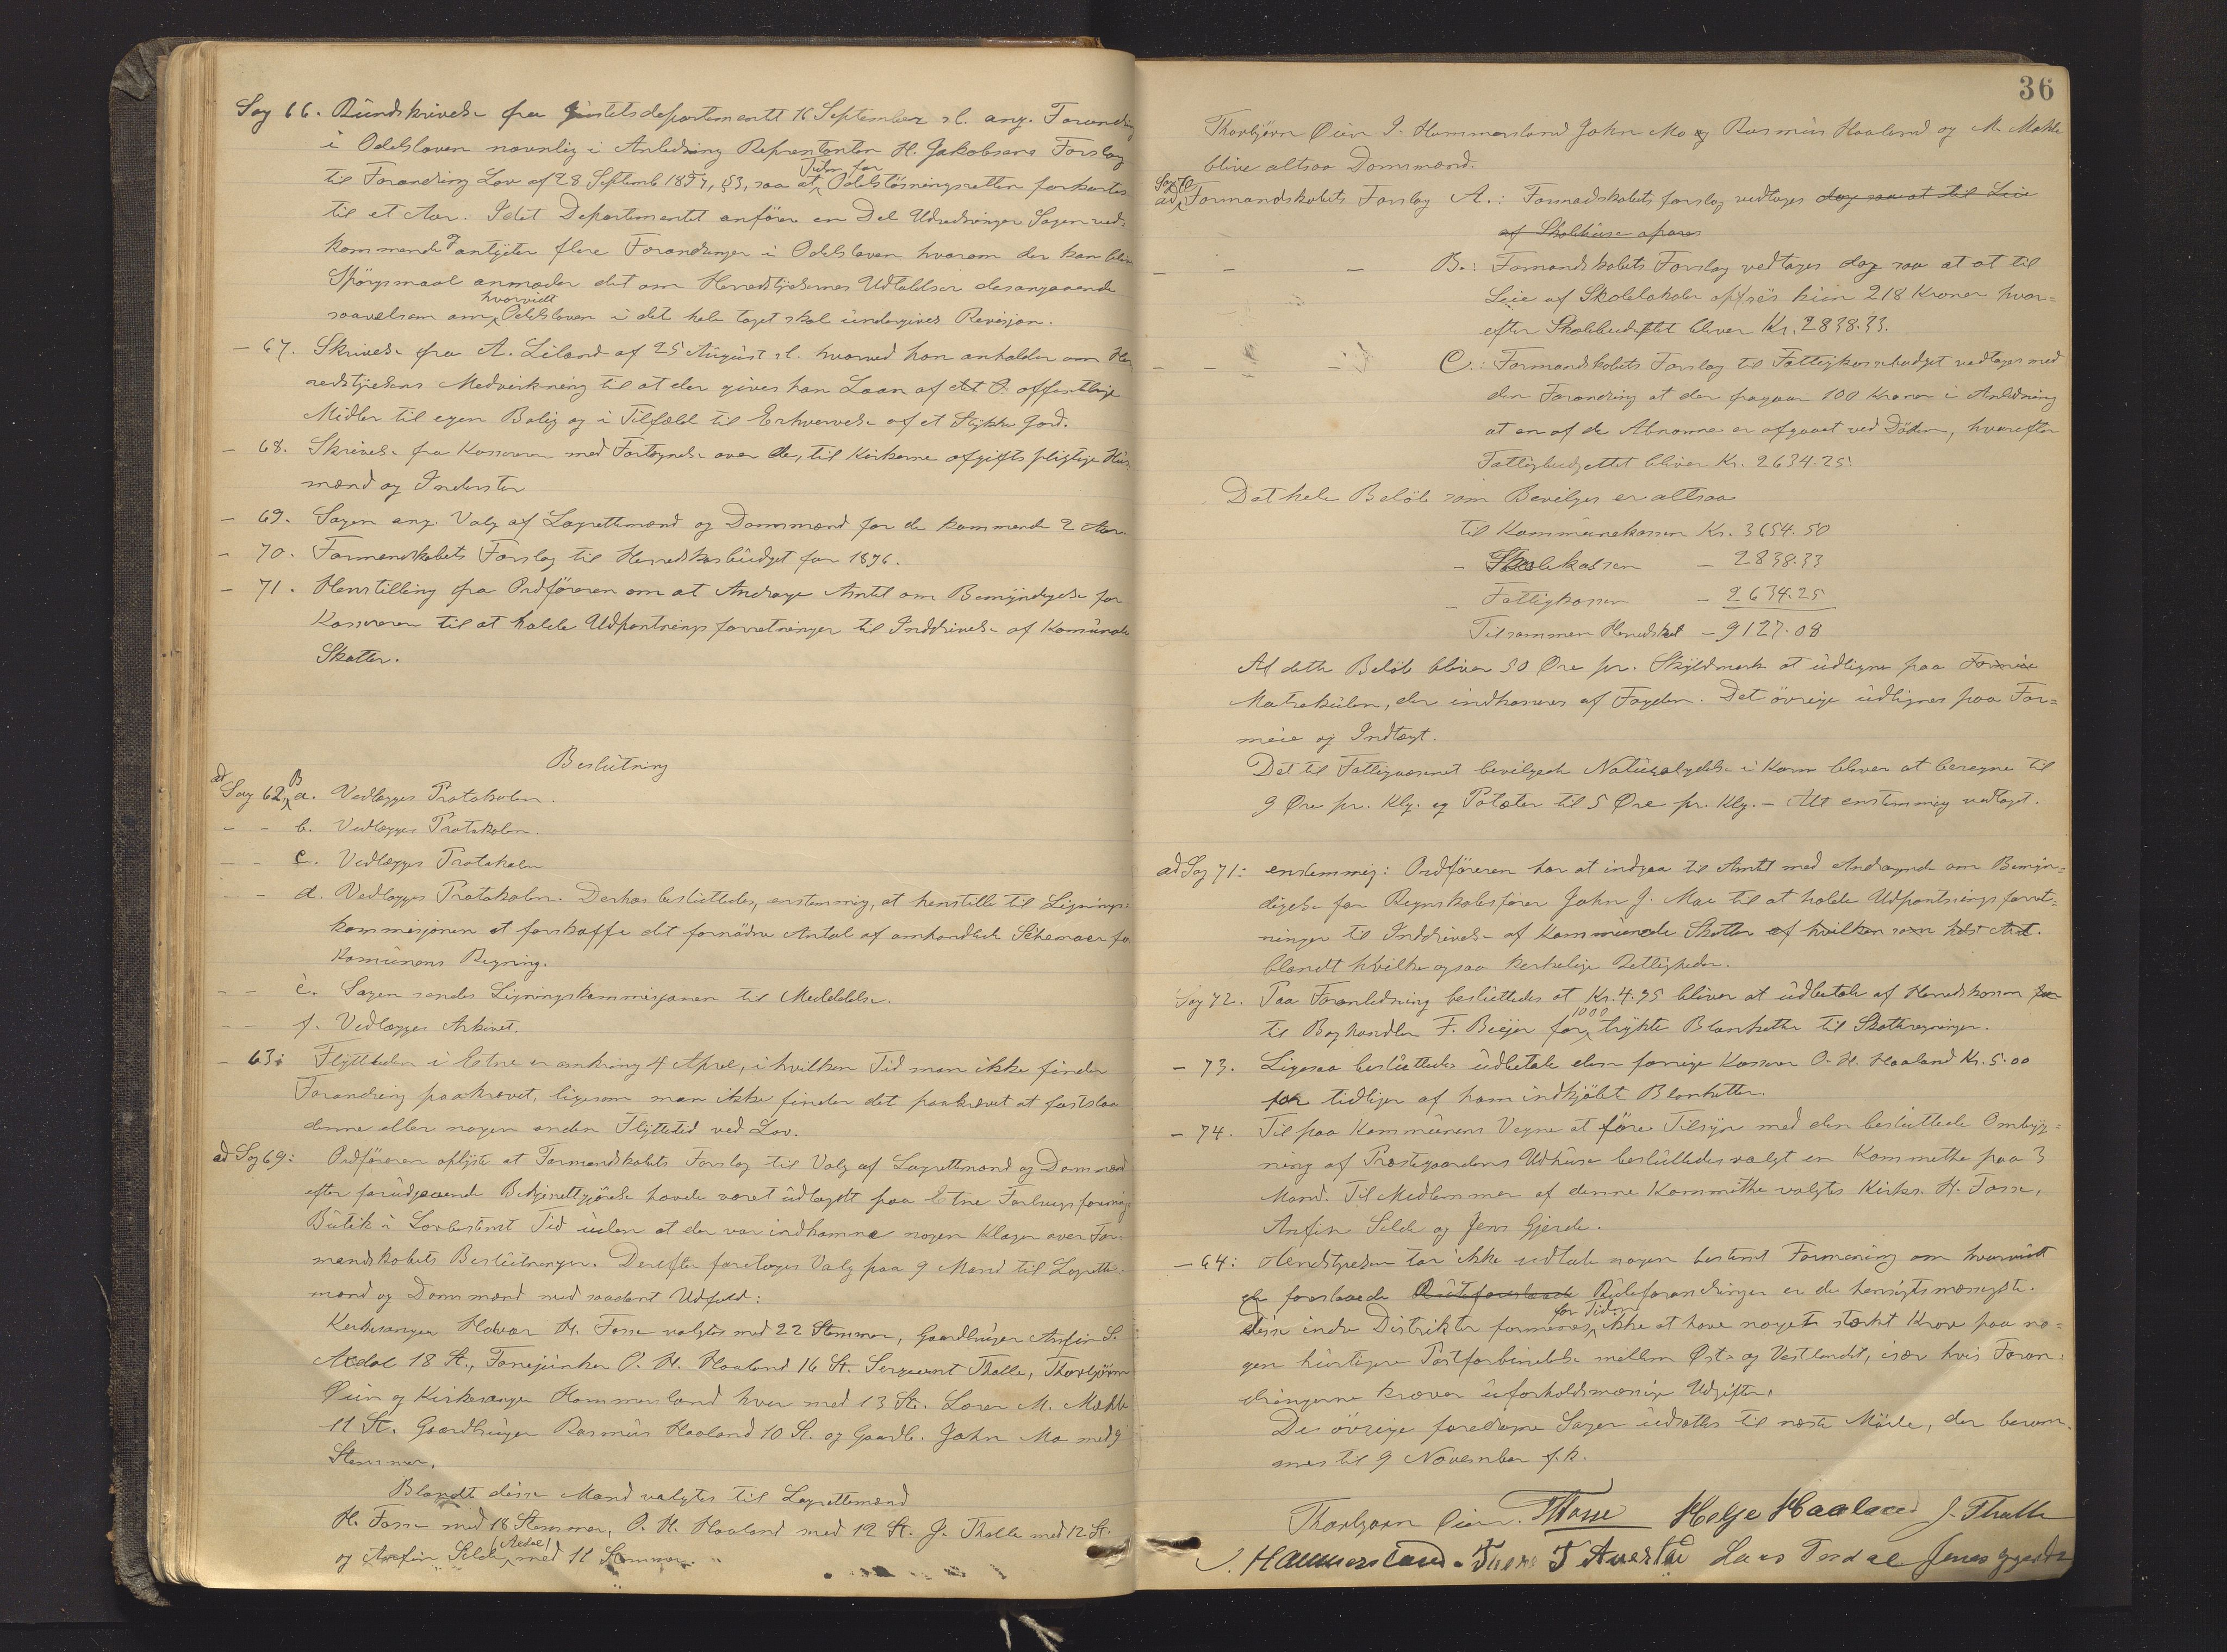 Sag 66. Rundskrivelse fra Justitsdepartementet 16 September d. ang. Forandring
i Odelsloven navnlig i Anledning Representanten H. Jakobsens Forslag
til Forandring Lov af 28 Septemb 1857, §3, saa at Tiden for Odelsløsningsretten forkortes
til et Aar. Idet Departementet anfører en Del Udredninger Sagen ved-
kommende antyder flere Forandringer i Odelsloven hvorom der kan blive
Spørgsmaal anmoder det om Herredstyrelsernes Udtalelser desangaaende
saavelsom om hvorvidt Odelsloven i det hele taget skal undergives Revisjon.
- 67. Skrivelse fra A. Liland af 25 August d. hvorved han anholder om Her
redstyrelsens Medvirkning til at der gives ham Laan af det offentlige
Midler til egen Bolig og i Tilfælde til Erhvervelse af et Stykke Jord.
- 68. Skrivelse fra Kassereren med Fortegnelse over de, til Kirkerne afgiftspligtige Hus
mænd og Inderster
- 69. Sagen ang. Valg af Lagrettemænd og Domsmænd for de kommende 2 Aar.
- 70. Formandskabets Forslag til Herredskasbudget for 1896.
- 71. Henstilling fra Ordføreren om at Andrage Amtet om Bemyndigelse for
Kassereren til at holde Udpantningsforretninger til Inddrivelse af Komunale
Skatter.
Beslutning
ad Sag 62, B a. Vedlægges Protokolen.
- - b. Vedlægges Protokolen.
- - c. Vedlægges Protokolen
- - d. Vedlægges Protokolen. Derhos besluttedes, enstemmig, at henstille til Lignings-
kommisjonen at forskaffe det fornødne Antal af omhandlede Schemaer for
Komunens Regning.
- - e. Sagen sendes Ligningskommisjonen til Meddelelse.
- - f. Vedlægges Arkivet.
- 63: Flyttetiden i Etne er omkring 4 April, i hvilken Tid man ikke finder
Forandring paakrævet, ligesom man ikke finder det paakrævet at fastslaa
denne eller nogen anden Flyttetid ved Lov.
ad Sag 69: Ordføreren oplyste at Formandskabets Forslag til Valg af Lagrettemænd og Domsmænd
efter forudgaaende Bekjendtgjørelse havde været udlagt paa Etne Forbrugsforenings
Butik i Lovbestemt Tid uden at der var indkomne nogen Klager over For-
mandskabets Beslutninger. Derefter foretoges Valg paa 9 Mænd til Lagrette-
mænd og Domsmænd med saadant Udfald:
Kirkesanger Halvor H. Fosse valgtes med 22 Stemmer, Gaardbruger Anfin S.
Ædal 18 St., Fanejunker O. H. Haaland 16 St. Sergeant Tholle, Thorbjørn
Øien og Kirkesanger Hammersland hver med 13 St. Lærer M. Mæhle
11 St. Gaardbruger Rasmus Haaland 10 St. og Gaardb. John Mo med 9
Stemmer.
Blandt disse Mænd valgtes til Lagrettemænd
H. Fosse med 18 Stemmer, O. H. Haaland med 12 St. J. Tholle med 12 St.
og Anfin Selde (Ædal) med 11 Stemmer.
36
Thorbjørn Øien J. Hammersland John Mo og Rasmus Haaland og M. Mæhle
blive altsaa Domsmænd.
ad Sag 70 Formandskabets Forslag A.: Formandskabets forslag vedtages dog saa at til Leie
af Skolehuse opføres
- - - B.: Formandskabets Forslag vedtages dog saa at at til
Leie af Skolelokaler opføres kun 218 Kroner hvor-
efter Skolebudgettet bliver Kr. 2838.33.
- - - C.: Formandskabets Forslag til Fattigkassebudget vedtages med
den Forandring at der fragaar 100 Kroner i Anledning
at en af de Abnorme er afgaaet ved Døden, hvorefter
Fattigbudgettet bliver Kr. 2634.25.
Det hele Beløb som Bevilges er altsaa
til Kommunekassen Kr. 3654.50
- Skolekassen - 2838.33
- Fattigkassen - 2634.25
Tilsammen Herredskat - 9127.08
Af dette Beløb bliver 50 Øre pr. Skyldmark at udligne paa Formue
Matrekulen, der indkasseres af Fogden. Det øvrige udlignes paa For-
mue og Indtægt.
Det til Fattigvæsenet bevilgede Naturalydelse i Korn bliver at beregne til
9 Øre pr. Klg. og Poteter til 5 Øre pr. Klg. - Alt enstemmig vedtaget.
ad Sag 71: enstemmig: Ordføreren har at indgaa til Amtet med Andragende om Bemyn-
digelse for Regnskabsfører John J. Moe til at holde Udpantningsforret-
ninger til Inddrivelse af Kommunale Skatter af hvilken som helst Art.
blandt hvilke ogsaa kirkelige Rettigheder.
Sag 72. Paa Foranledning besluttedes at Kr. 4.95 bliver at udbetale af Herredskassen for
til Boghandler F. Beyer for 1000 trykte Blanketter til Skatteregninger.
- 73. Ligesaa besluttedes udbetale den forrige Kasserer O. H. Haaland Kr. 5.00
for tidligere af ham indkjøbt Blanketter.
- 74. Til paa Kommunens Vegne at føre Tilsyn med den besluttede Ombyg-
ning af Præstegaardens Udhuse besluttedes valgt en Kommitte paa 3
Mand. Til Medlemmer af denne Kommitte valgtes Kirks. H. Fosse,
Anfin Selde og Jens Gjerde.
- 64: Herredstyrelsen tør ikke udtale nogen bestemt Formening om hvorvidt
de foreslaaede Ruteforeslaaede Ruteforandringer er de hensigtsmæssigste.
Disse indre Distrikter formenes for Tiden ikke at have noget stærkt Krav paa no-
gen hurtigere Postforbindelse mellem Øst- og Vestlandet, især hvis Foran-
dringerne kræver uforholdsmæssige Udgifter.
De øvrige foredragne Sager udsættes til næste Møde, der beram-
mes til 9 November f. k.
Thorbjørn Øien. HFosse Helge Haaland J. Tholle
J. Hammersland. Lars Tesdal Jens Gjerde